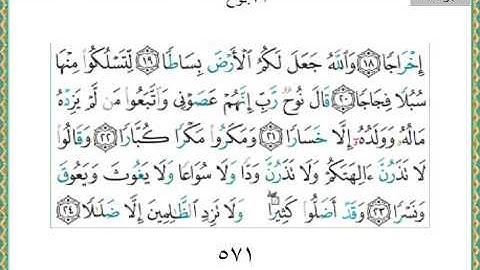 إِخْرَاجًا ﴿١٨﴾ وَاللَّهُ جَعَلَ لَكُمُ الْأَرْضَ بِسَاطًا ﴿١٩﴾ لِّتَسْلُكُوا مِنْهَا
سُبُلًا فِجَاجًا ﴿٢٠﴾ قَالَ نُوحٌ رَّبِّ إِنَّهُمْ عَصَوْنِي وَاتَّبَعُوا مَن لَّمْ يَزِدْهُ
مَالُهُ وَوَلَدُهُ إِلَّا خَسَارًا ﴿٢١﴾ وَمَكَرُوا مَكْرًا كُبَّارًا ﴿٢٢﴾ وَقَالُوا
لَا تَذَرُنَّ آلِهَتَكُمْ وَلَا تَذَرُنَّ وَدًّا وَلَا سُوَاعًا وَلَا يَغُوثَ وَيَعُوقَ
وَنَسْرًا ﴿٢٣﴾ وَقَدْ أَضَلُّوا كَثِيرًا ۖ وَلَا تَزِدِ الظَّالِمِينَ إِلَّا ضَلَالًا ﴿٢٤﴾
٥٧١